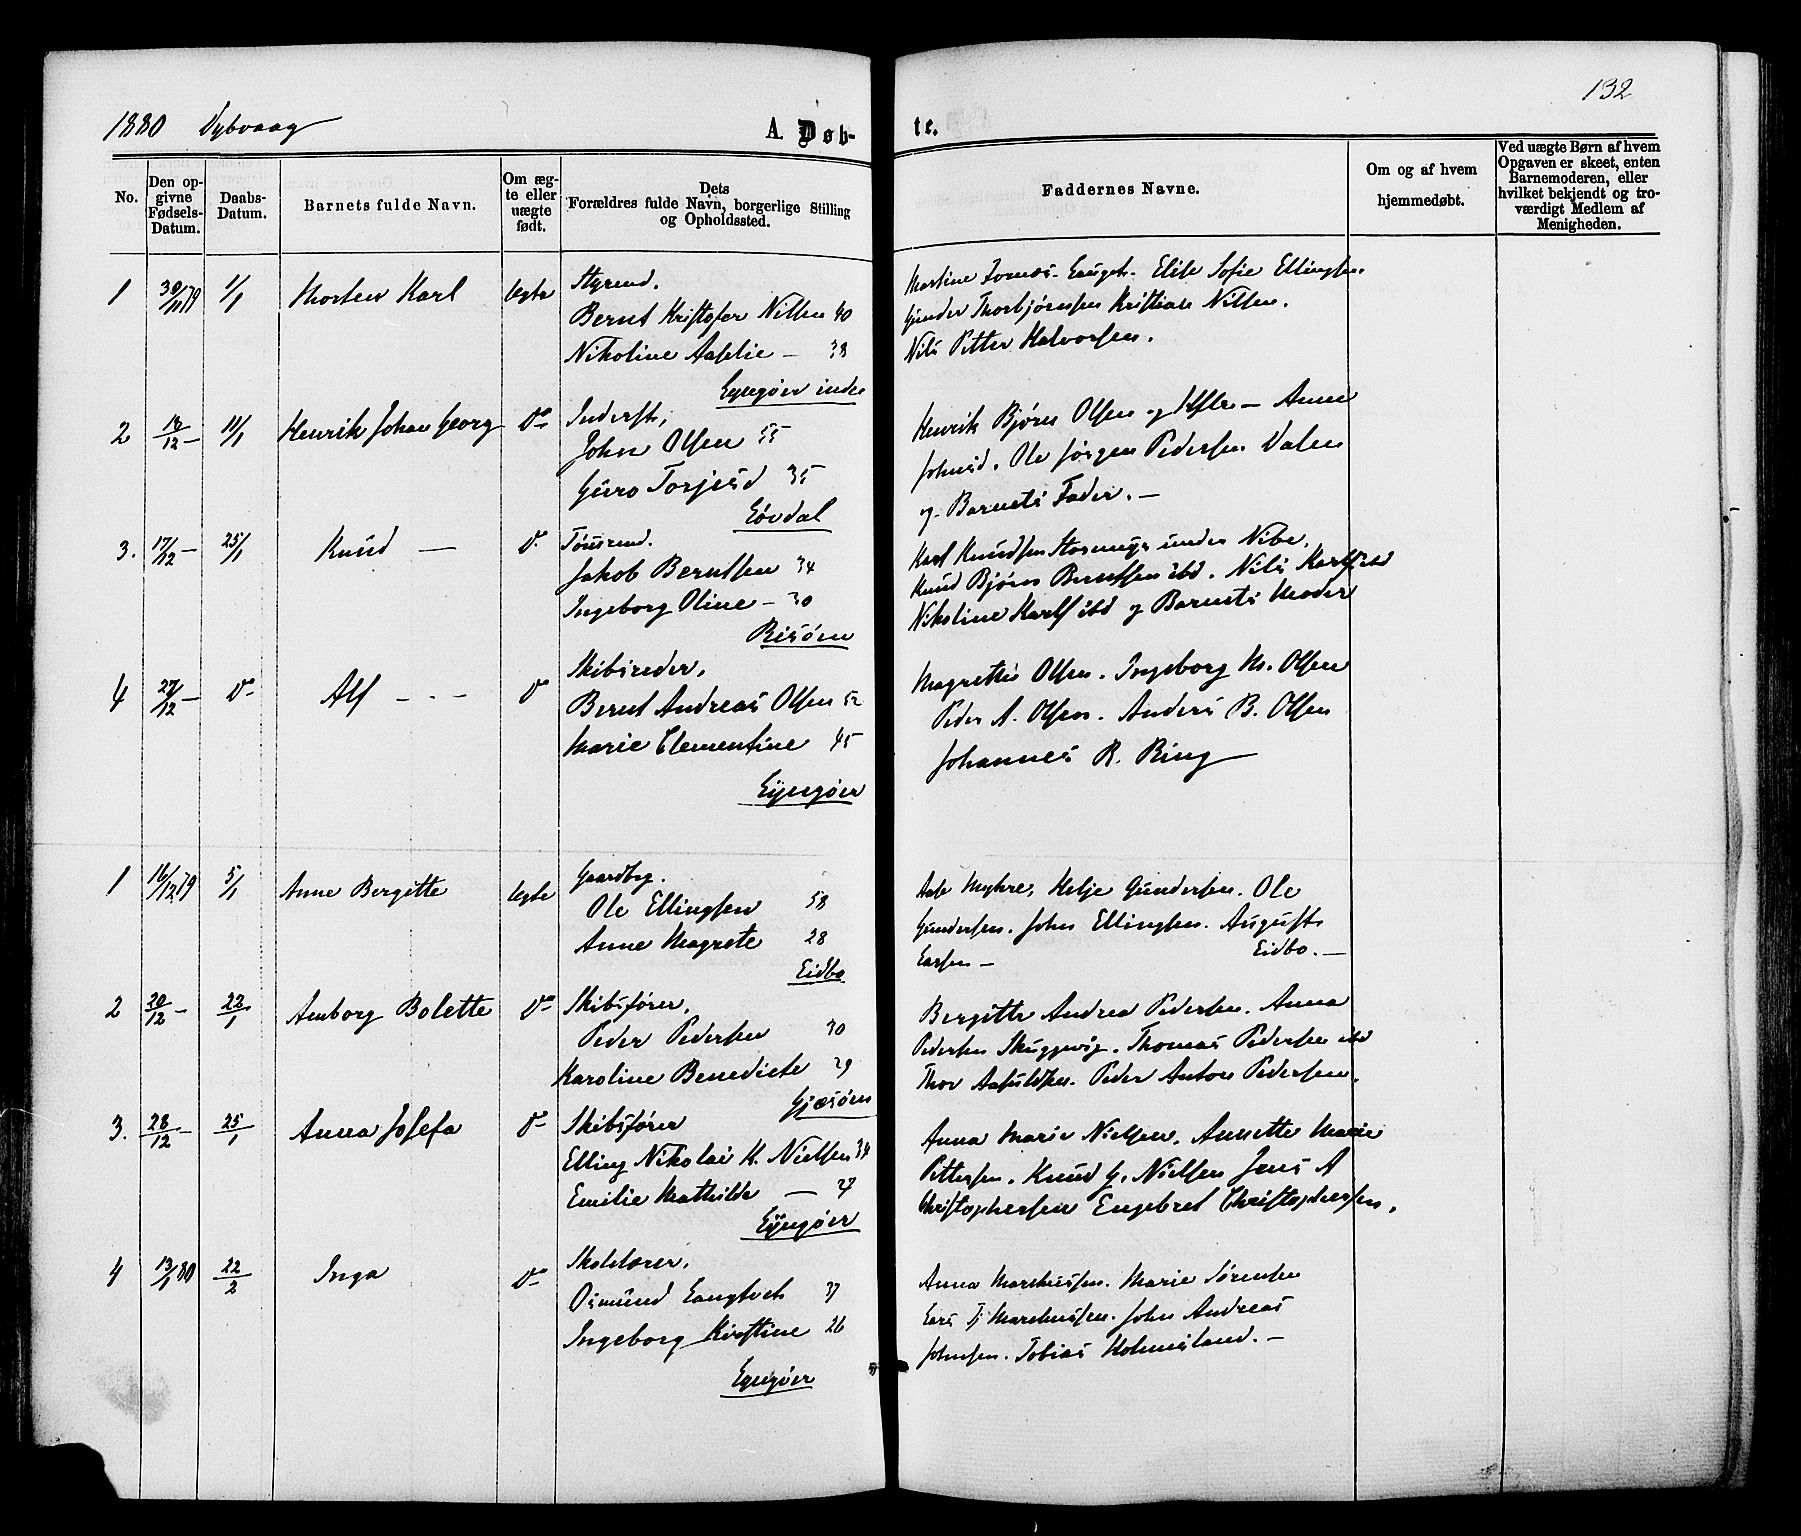 132
1880 Dybvaag
A. Døb-
te.
No.
Den op-
givne
Fødsels-
Datum.
Daabs-
Datum.
Barnets fulde Navn.
Om æg-
te eller
uægte
født.
Dets
Forældres fulde Navn, borgerlige Stilling
og Opholdssted.
Faddernes Navne.
Om og af hvem
hjemmedøbt.
Ved uægte Børn af hvem
Opgaven er skeet, enten
Barnemoderen, eller
hvilket bekjendt og tro-
værdigt Medlem af
Menigheden.
1 30/11 79 1/1 Morten Karl Ægte
Styrmd.
Bernt Kristofer Nilsen 40
Nikoline Aaselie — 38
Lyngøer indre
Martine Elise Sofie Ellingsen.
Gunder Thorbjørnsen Kristian Nilsen.
Nils Petter Halvorsen.
2 18/12 — 11/1 Henrik Johan Georg Do
Inderst,
John Olsen 55
Guro Torjusd 35
Løvdal
Henrik Bjørn Olsen og — Anne
Johnsd. Ole Jørgen Pedersen Dalen
og Barnets Fader. —
3. 17/12 — 25/1 Knud — Do
Tømrmd.
Jakob Berntsen 34
Ingeborg Oline — 30
Risøen
Karl Knudsen under Nibe.
Knud Bjørn Berntsen ibd. Nils Karlsen ibd
Nikoline Karls ibd og Barnets Moder
4 27/12 — Do Alf — - - Do
Skibsreder,
Bernt Andreas Olsen 52
Marie Clementine 45
Lyngøer
Magrethe Olsen. Ingeborg M. Olsen
Peder A. Olsen. Anders B. Olsen
Johannes R. Ring —
1 16/12 79 5/1 Anne Bergitte Ægte
Gaardbg.
Ole Ellingsen 58
Anne Magrete 28
Eidbo
Aase Myhre, Helje Gundersen. Ole
Gundersen. John Ellingsen. August
Larsen — Eidbo. —
2 20/12 — 22/1 Amborg Bolette Do
Skibsfører,
Peder Pedersen 30
Karoline Benedicte 29
Gjæsøen
Bergitte Andrea Pedersen. Anna
Pedersen Skuggevig. Thomas Pedersen ibd
Thor Aasuldsen. Peder Anton Pedersen.
3. 28/12 — 25/1 Anna Josefa Do
Skibsfører
Elling Nikolai K. Nielsen 34
Emilie Mathilde — 27
Lyngøer
Anna Marie Nielsen. Annette Marie
Pettersen. Knud G. Nielsen Jens A
Christophersen Engebret Christophersen.
4 13/1 80 22/2 Inga Do
Skolelærer,
Osmund Langtvet 37
Ingeborg Kirstine 26
Lyngøer
Anna Markussen. Marie Sørensen
Lars Tj Markussen. John Andreas
Johnsen. Tobias Holmesland. —